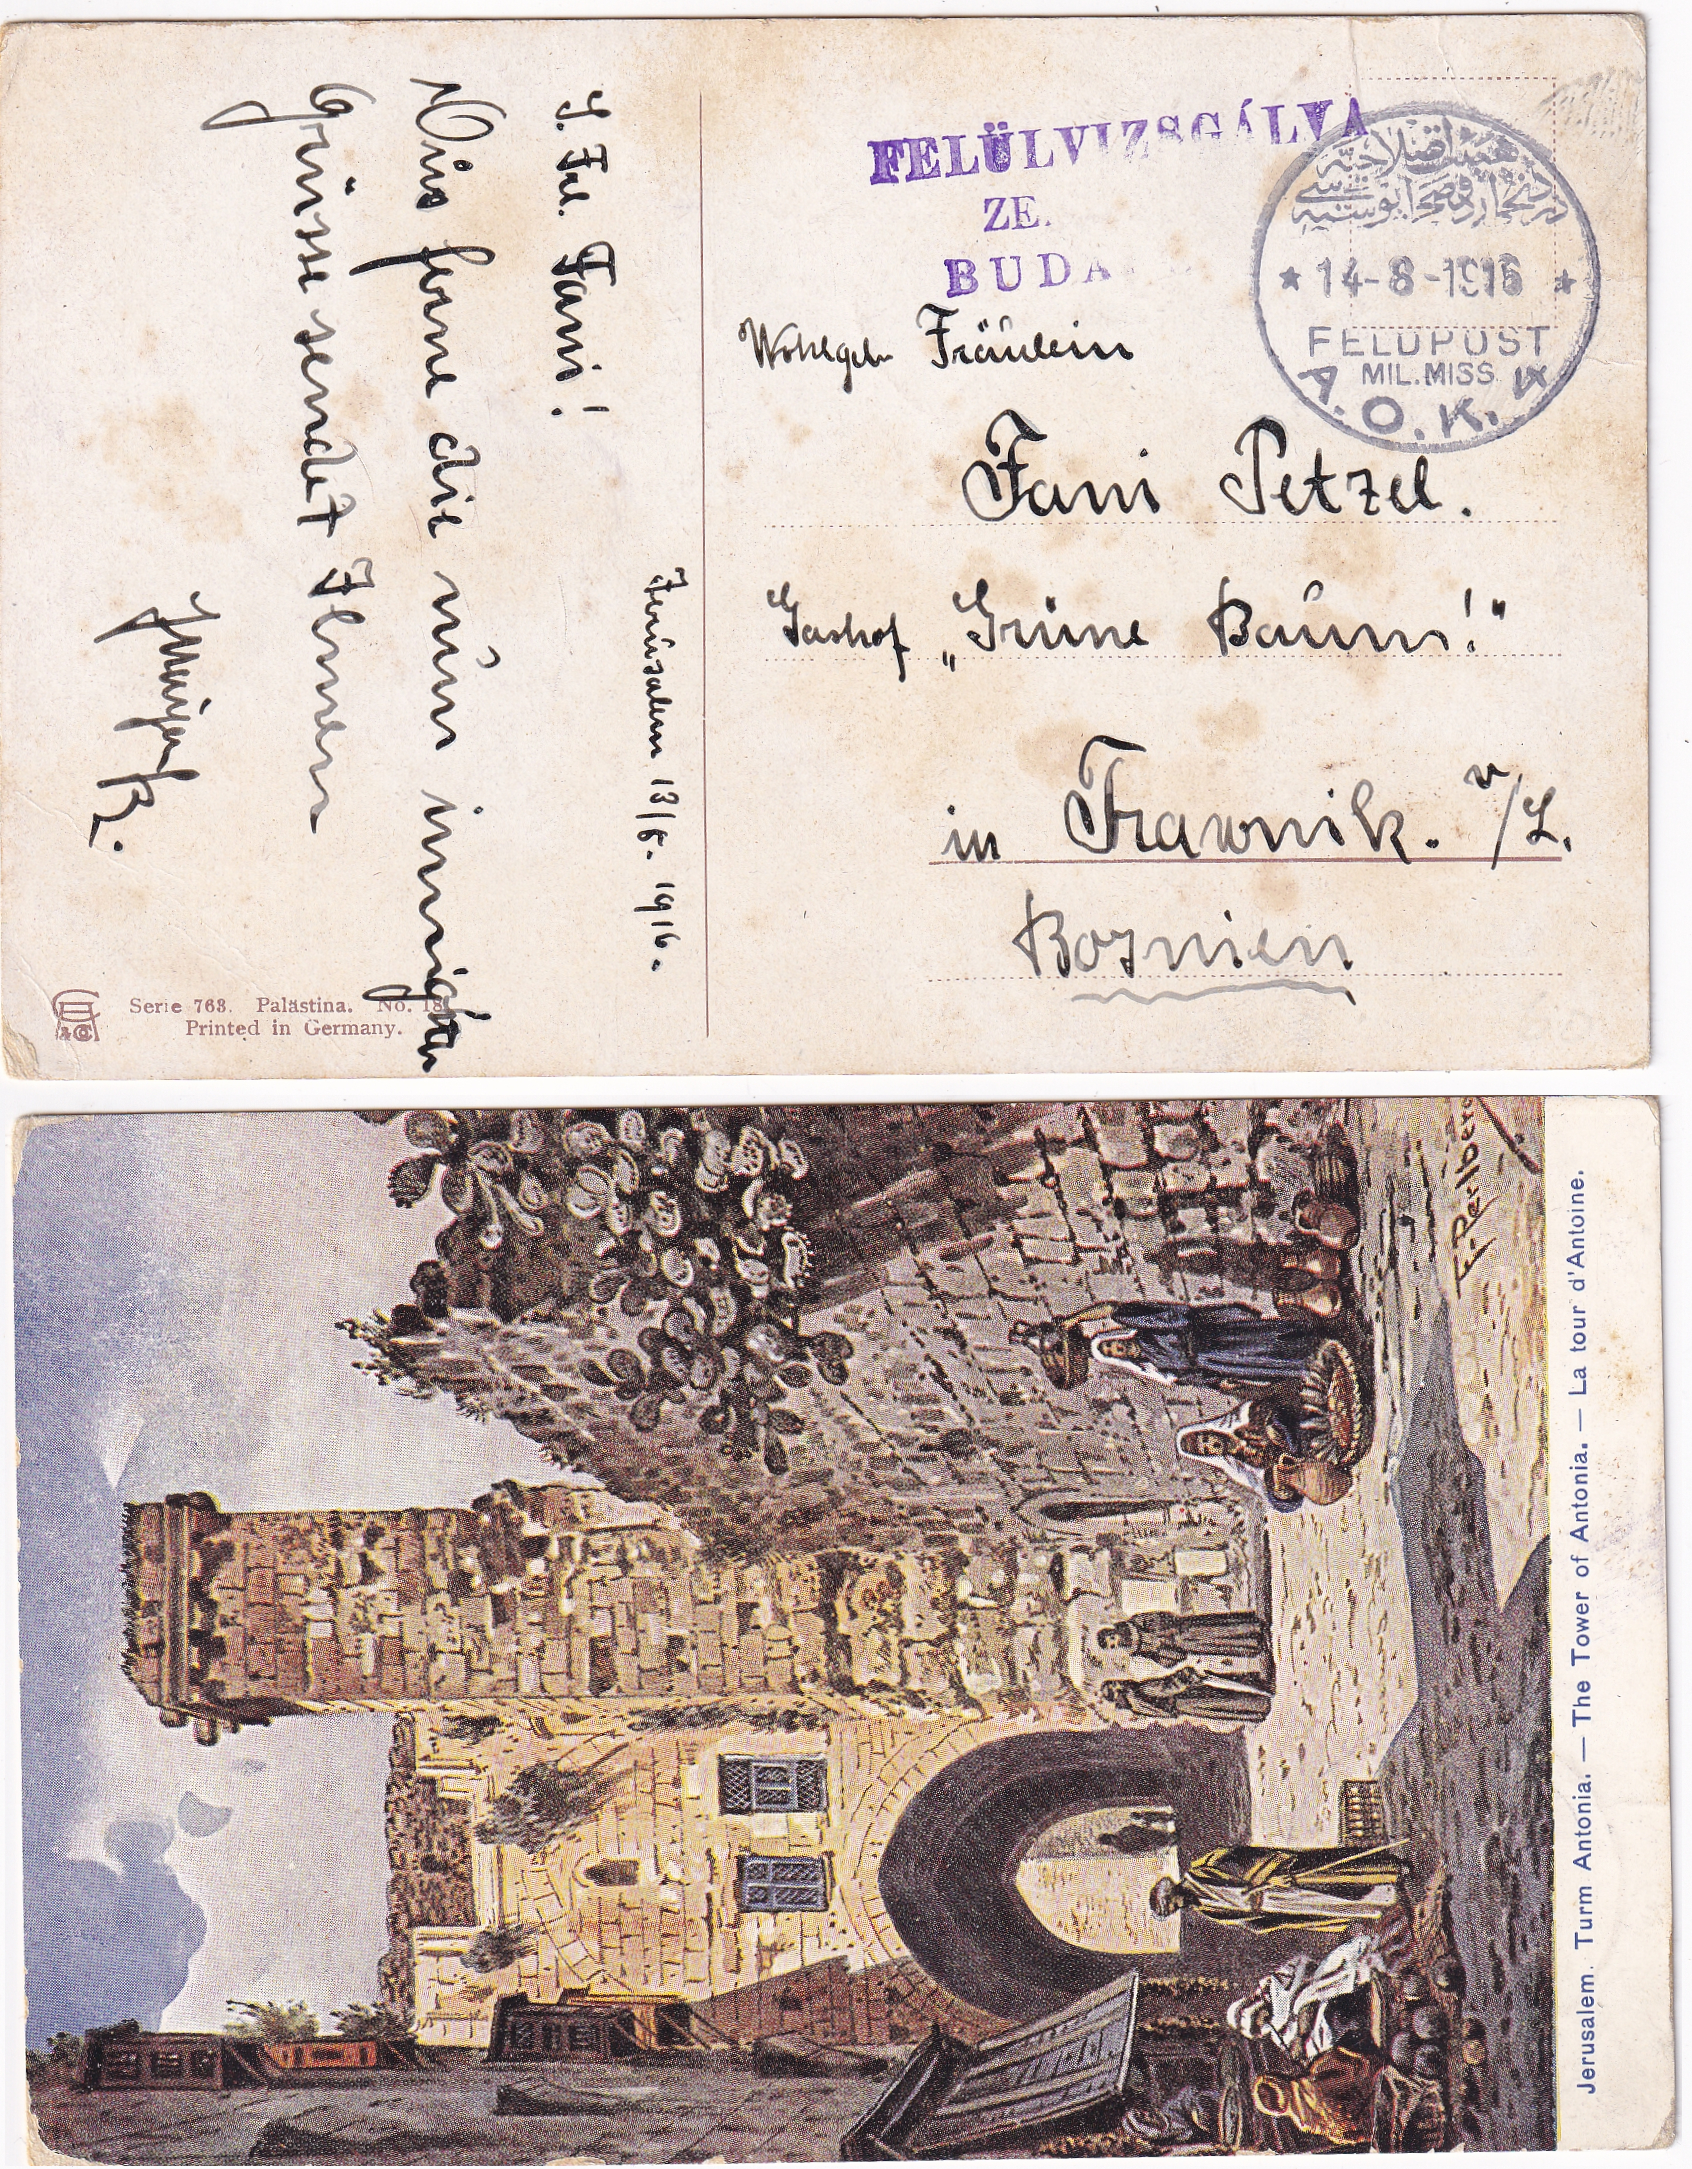 FELÜLVIZSGÁLVA
ZE.
BUDA
* 14-8-1916 *
FELDPOST
MIL.MISS.
A.O.K. 4
Wohlgeb Fräulein
Fani Petzel.
Gashof „Grüne Baum!"
in Trawnik. n/L.
Bosnien
Jerusalem 13/8. 1916.
L. Frl. Fani!
Aus ferne die nun innigsten
Grüsse sendet Ihnen
Serie 763. Palästina. No. 18
Printed in Germany.
F. Perlberg
Jerusalem. Turm Antonia. — The Tower of Antonia. — La tour d'Antoine.